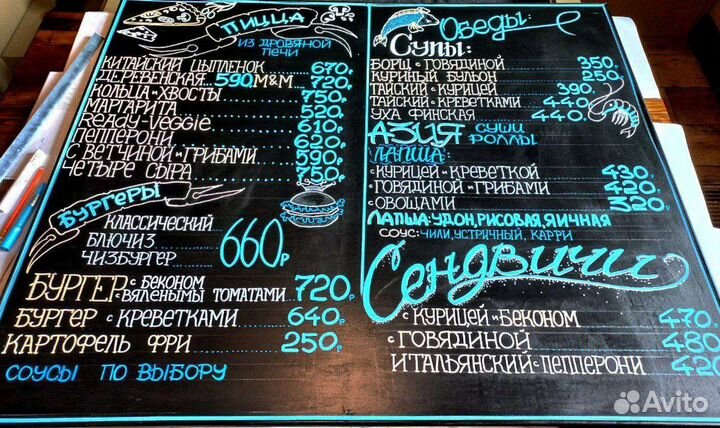 ПИЦЦА
ИЗ ДРОВЯНОЙ
ПЕЧИ
КИТАЙСКИЙ ЦЫПЛЕНОК 670р
ДЕРЕВЕНСКАЯ...590, M&M..720р
КОЛЬЦА и ХВОСТЫ 750р
МАРГАРИТА 520р
Ready-Veggie 610р
ПЕППЕРОНИ 620р
С ВЕТЧИНОЙ и ГРИБАМИ 590р
ЧЕТЫРЕ СЫРА 750р
БУРГЕРЫ
КЛАССИЧЕСКИЙ
БЛЮЧИЗ
ЧИЗБУРГЕР
660р
БУРГЕР с БЕКОНОМ
с ВЯЛЕНЫМЫ ТОМАТАМИ 720р
БУРГЕР с КРЕВЕТКАМИ 640р
КАРТОФЕЛЬ ФРИ 250р
СОУСЫ ПО ВЫБОРУ
Обеды:
Супы:
БОРЩ с ГОВЯДИНОЙ 350р
КУРИНЫЙ БУЛЬОН 250р
ТАЙСКИЙ с КУРИЦЕЙ 390р
ТАЙСКИЙ с КРЕВЕТКАМИ 440р
УХА ФИНСКАЯ 440р
АЗИЯ СУШИ
РОЛЛЫ
ЛАПША:
с КУРИЦЕЙ и КРЕВЕТКОЙ 430р
с ГОВЯДИНОЙ и ГРИБАМИ 420р
с ОВОЩАМИ 320р
ЛАПША: УДОН, РИСОВАЯ, ЯИЧНАЯ
СОУС: ЧИЛИ, УСТРИЧНЫЙ, КАРРИ
Сендвичи
с КУРИЦЕЙ и БЕКОНОМ 470
с ГОВЯДИНОЙ 480
ИТАЛЬЯНСКИЙ с ПЕППЕРОНИ 420
Avito